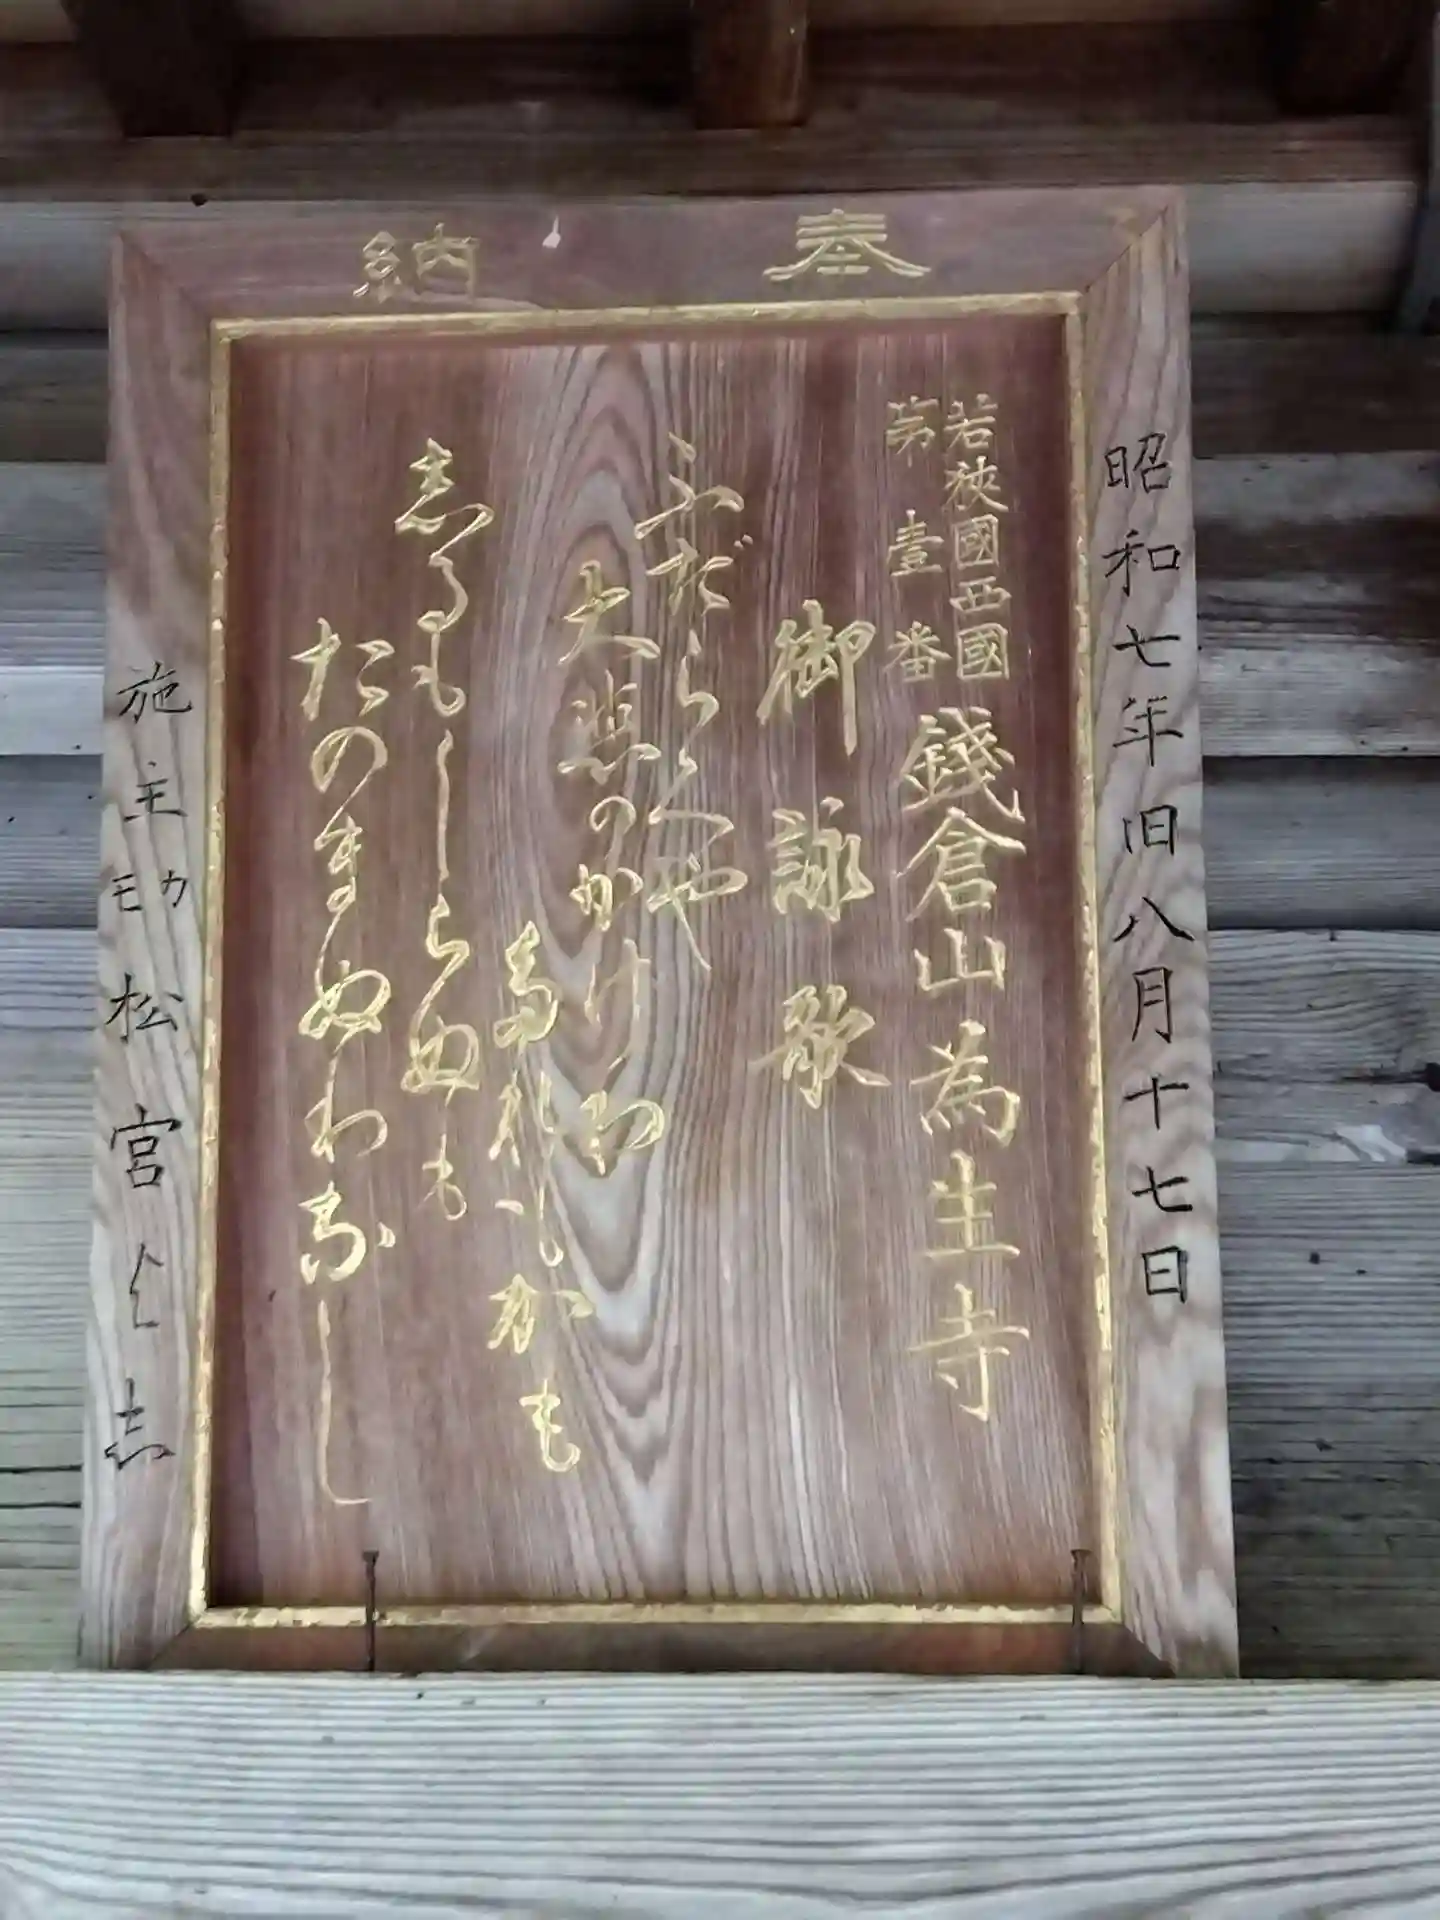 奉納
昭和七年旧八月十七日
若狹國西國
第壹番
錢倉山為生寺
御詠歌
ふだらくや
大悲のかけ
志るもしらぬも
たのまぬわなし
施主 カモ 松宮 志